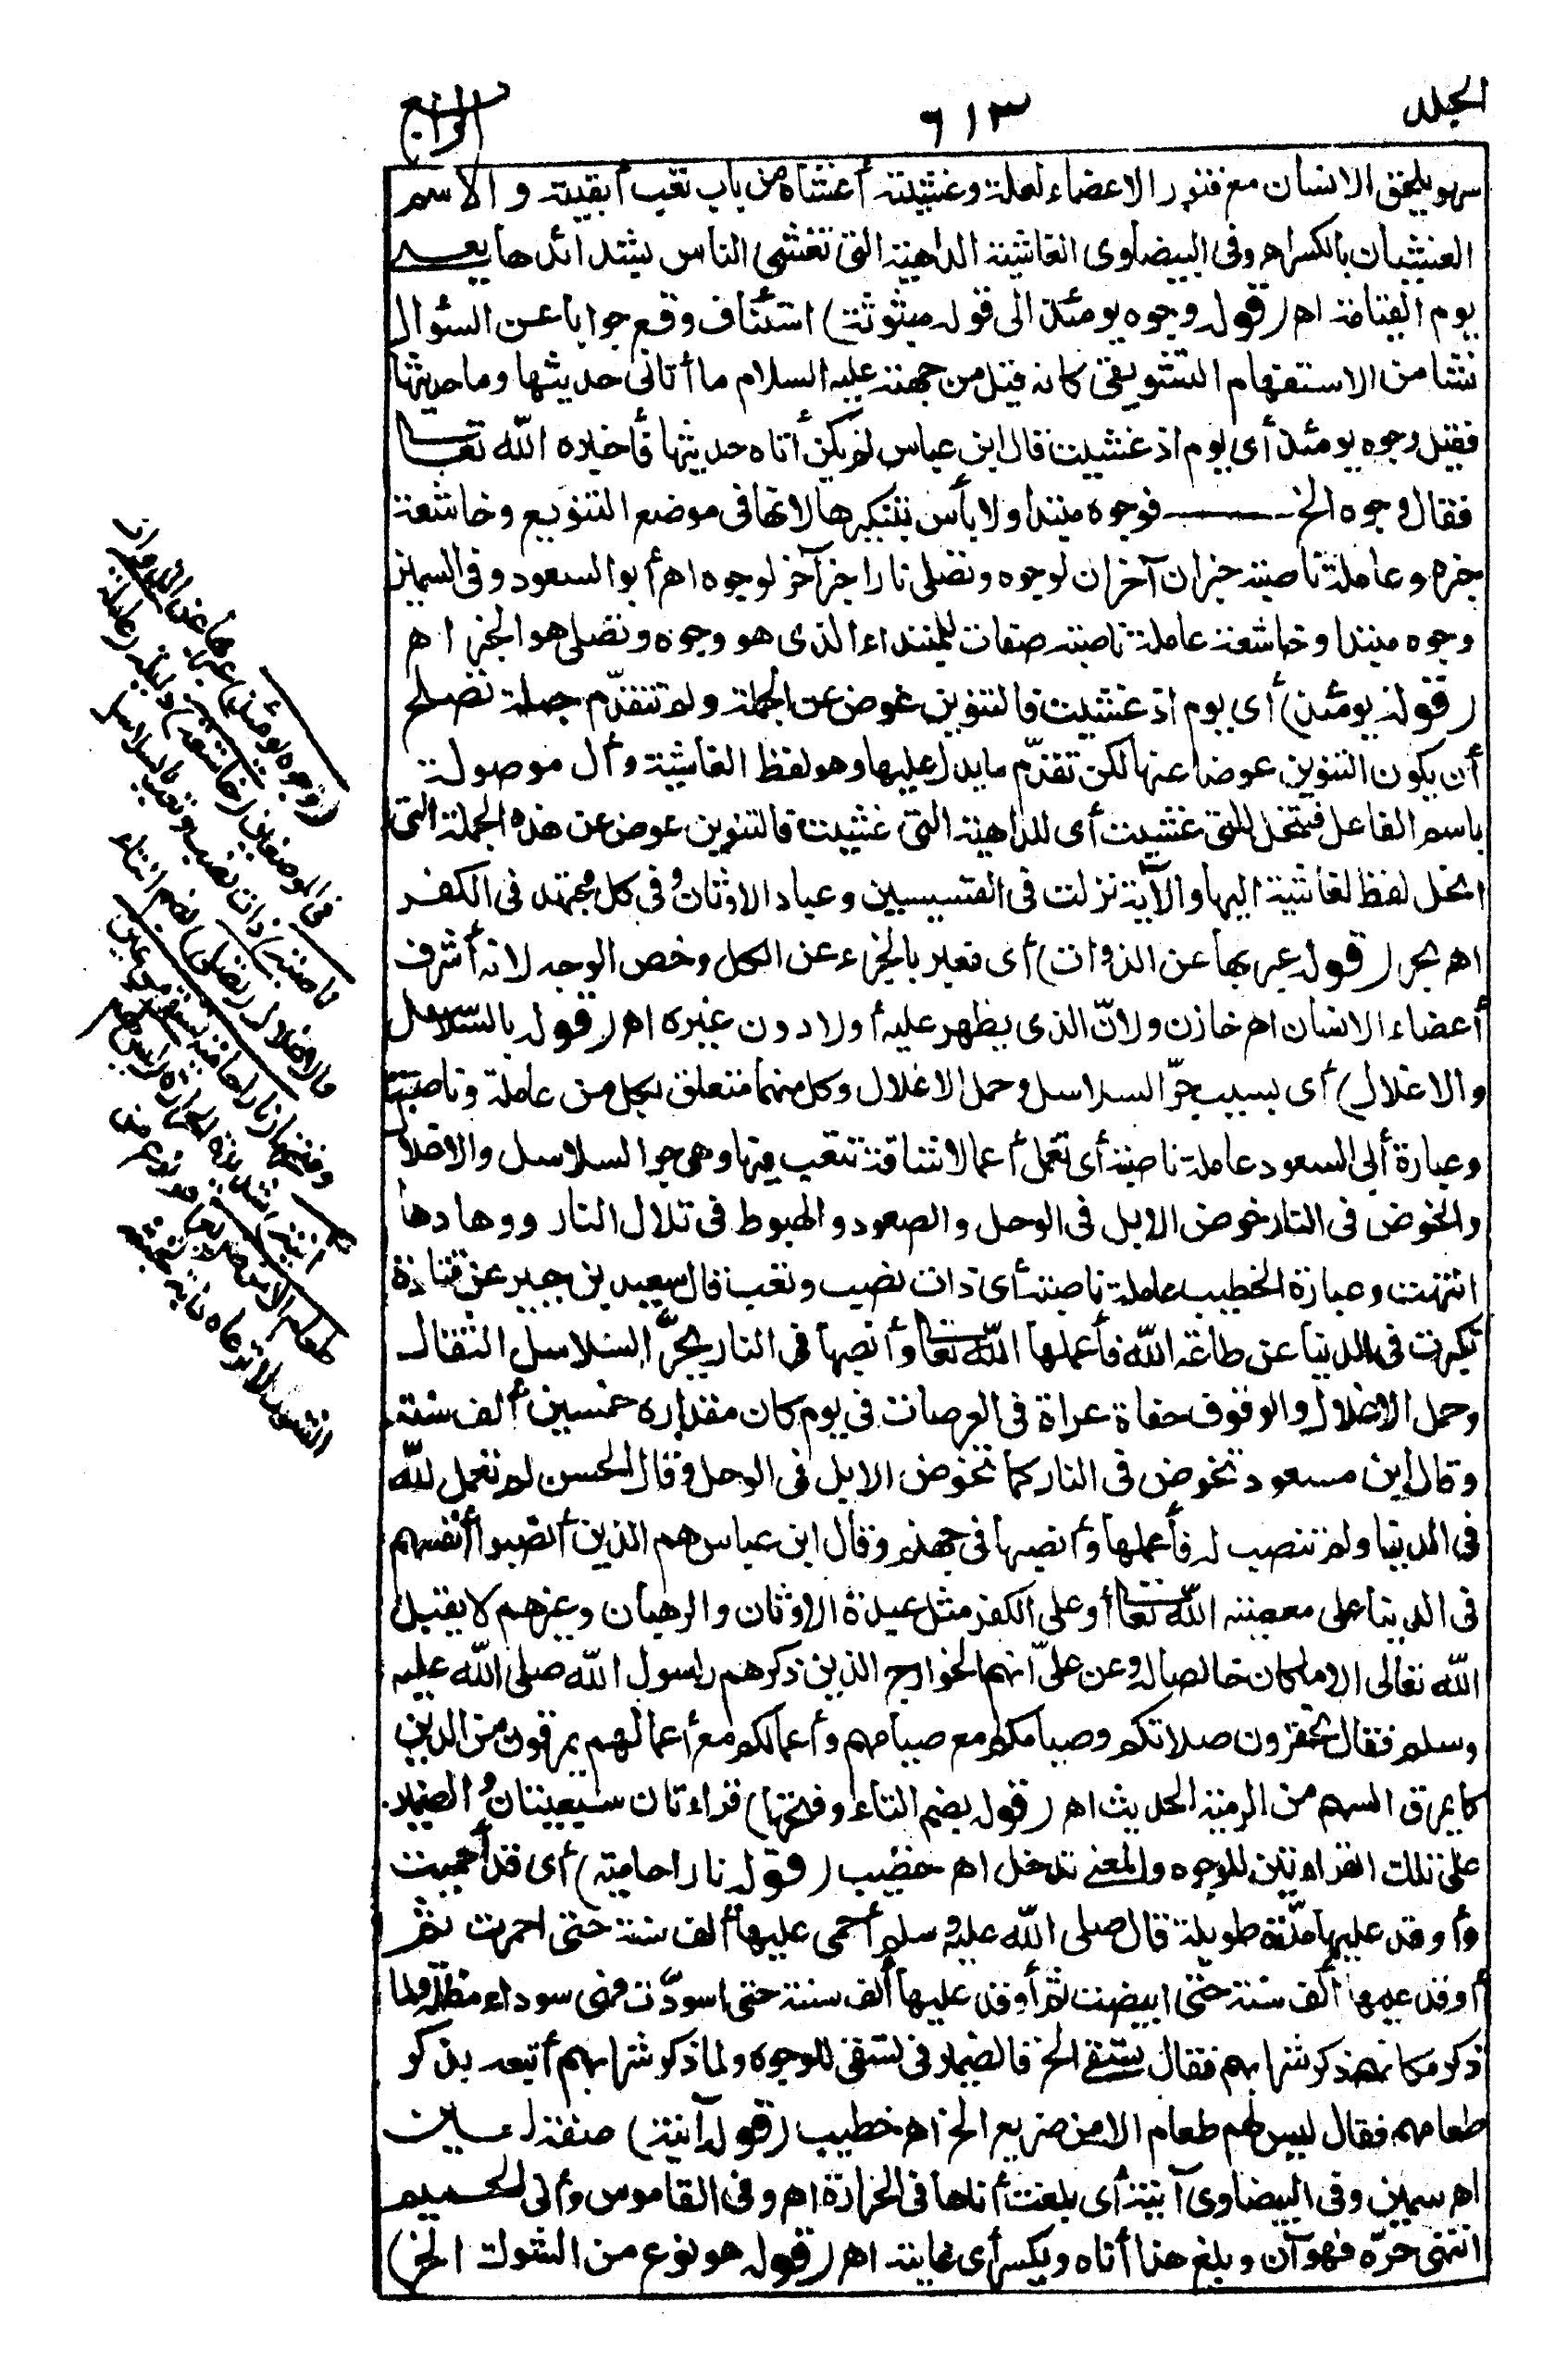 الجلد ٦١٣ الرابع
سهو يلحق الانسان مع فتور الاعضاء لعلة وغشيته أغشاه من باب تعب أبقيته و الاسم
الغشيان بالكسر اه وفى البيضاوى الغاشية الداهية التى تغشى الناس بشدائدها يعنى
يوم القيامة اه (قوله وجوه يومئذ الى قوله مبثوثة) استئناف وقع جوابا عن السئوال
نشا من الاستفهام التشويقى كانه قيل من جهته عليه السلام ما أتانى حديثها وما حديثها
فقيل وجوه يومئذ أى يوم اذ غشيت قال ابن عباس لم يكن أتاه حديثها فأخبره الله تعا
فقال وجوه الخ فوجوه مبتدا ولا بأس بتنكيرها لانها فى موضع التنويع وخاشعة
خبره وعاملة ناصبة خبران آخران لوجوه وتصلى نارا خبر آخر لوجوه اه أبو السعود وفى السمين
وجوه مبتدا وخاشعة عاملة ناصبة صفات للمبتداء الذى هو وجوه وتصلى هو الخبر اه
(قوله يومئذ) أى يوم اذ غشيت فالتنوين عوض عن الجملة ولم تتقدّم جملة تصلح
أن يكون التنوين عوضا عنها لكن تقدّم ما يدل عليها وهو لفظ الغاشية وأل موصولة
باسم الفاعل فتنحل للتى غشيت أى للداهية التى غشيت فالتنوين عوض عن هذه الجملة التى
انحل لفظ لغاشية اليها والآية نزلت فى القسيسين وعباد الاوثان وفى كل مجتهد فى الكفر
اه بحر (قوله عبر بها عن الذوات) أى تعبير بالجزء عن الكل وخص الوجه لانه أشرف
أعضاء الانسان اه خازن ولانّ الذى يظهر عليه أولا دون غيره اه (قوله بالسّلاسل
والاغلال) أى بسبب جرّ السلاسل وحمل الاغلال وكل منهما متعلق بكل من عاملة وناصبة
وعبارة أبى السعود عاملة ناصبة أى تعمل أعمالا شاقة تتعب فيها وهى جر السلاسل والاغلال
والخوض فى النار خوض الابل فى الوحل والصعود والهبوط فى تلال النار ووهادها
انتهت وعبارة الخطيب عاملة ناصبة أى ذات نصب وتعب قال سعيد بن جبير عن قتادة
تكبرت فى الدنيا عن طاعة الله فأعملها الله تعا وأنصبها فى النار بجرّ السلاسل الثقال
وحمل الاغلال والوقوف حفاة عراة فى العرصات فى يوم كان مقداره خمسين ألف سنة
وقال ابن مسعود تخوض فى النار كما تخوض الابل فى الوحل وقال الحسن لم تعمل للّه
فى الدنيا ولم تنصب له فأعملها وأنصبها فى جهنم وقال ابن عباس هم الذين أنصبوا أنفسهم
فى الدنيا على معصية الله تعا أو على الكفر مثل عبدة الاوثان والرهبان وغيرهم لا يقبل
اللّه تعالى الا ما كان خالصا له وعن علىّ أنهم الخوارج الذين ذكرهم رسول اللّه صلى اللّه عليه
وسلم فقال تحقرون صلاتكم وصيامكم مع صيامهم وأعمالكم مع أعمالهم يمرقون من الدين
كما يمرق السهم من الرمية الحديث اه (قوله بضم التاء وفتحها) قراءتان سبعيتان والضمير
على تلك القراءتين للوجوه والمعنى تدخل اه خطيب (قوله نارا حامية) أى قد أحميت
وأوقد عليها مدّة طويلة قال صلى اللّه عليه وسلم أحمى عليها ألف سنة حتى احمرت ثم
أوقد عليها ألف سنة حتى ابيضت ثم أوقد عليها ألف سنة حتى اسودّت فهى سوداء مظلمة ولما
ذكر مكانهم ذكر شرابهم فقال تسقى الخ فالضمير فى تسقى للوجوه ولما ذكر شرابهم أتبعه بذكر
طعامهم فقال ليس لهم طعام الا من ضريع الخ اه خطيب (قوله آنية) صفة لعين
اه سمين وفى البيضاوى آنية أى بلغت أناها فى الحرارة اه وفى القاموس وأنى الحميم
انتهى حرّه فهو آن وبلغ هذا أناه ويكسر أى غايته اه (قوله هو نوع من الشوك الخ)
(وجوه يومئذ) عبر بها عن الذوات
فى الموضعين (خاشعة) ذليلة (عاملة
ناصبة) ذات نصب وتعب بالسلاسل
والاغلال (تصلى) بضم التاء
وفتحها (نارا حامية تسقى من عين
آنية) شديدة الحرارة (ليس لهم
طعام الا من ضريع) هو نوع من
الشوك لا ترعاه دابة لخبثه